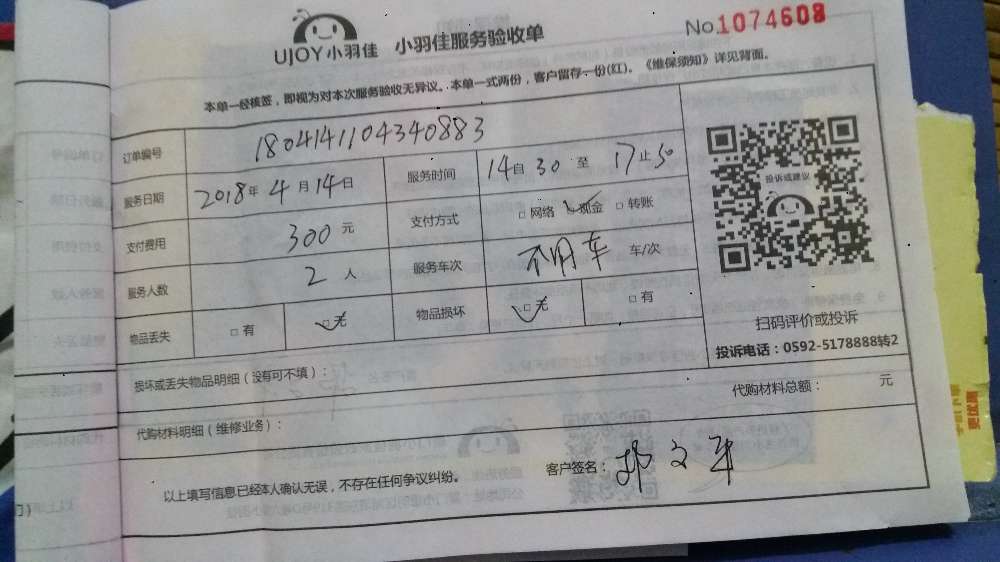 UJOY小羽佳 小羽佳服务验收单 No 1074608
本单一经核签，即视为对本次服务验收无异议。本单一式两份，客户留存一份(红)。《维保须知》详见背面。
订单编号 1804141104340883
服务日期 2018年4月14日 服务时间 14自30至17止50
支付费用 300元 支付方式 □网络 ☑现金 □转账
服务人数 2人 服务车次 不用车 车/次
物品丢失 □有 ☑无 物品损坏 ☑无 □有
投诉或建议
扫码评价或投诉
投诉电话：0592-5178888转2
损坏或丢失物品明细（没有可不填）：
代购材料总额： 元
代购材料明细（维修业务）：
以上填写信息已经本人确认无误，不存在任何争议纠纷。 客户签名：
更优惠